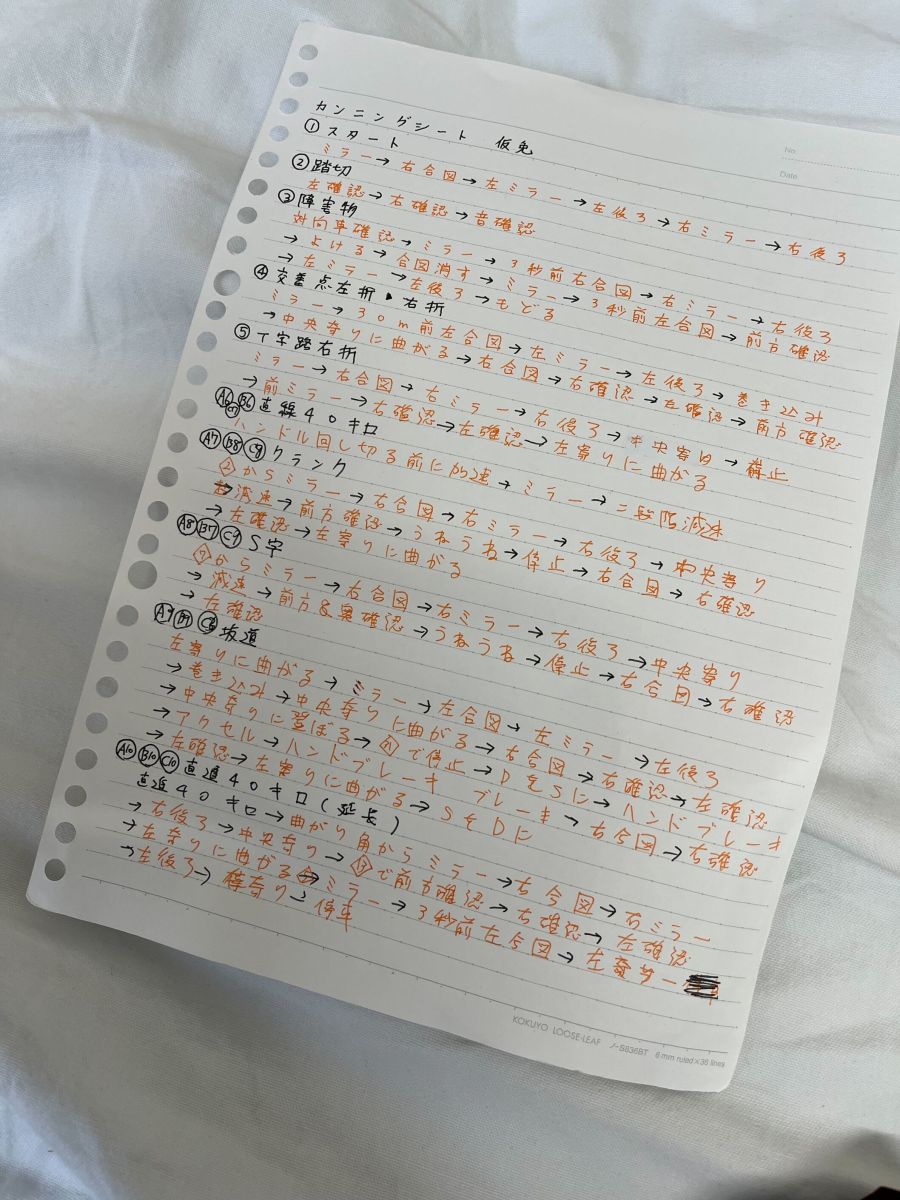 カンニングシート 仮免
No.
Date
①スタート
ミラー→右合図→左ミラー→左後ろ→右ミラー→右後ろ
②踏切
左確認→右確認→音確認
③障害物
対向車確認→ミラー→3秒前右合図→右ミラー→右後ろ
→よける→合図消す→ミラー→3秒前左合図→前方確認
→左ミラー→左後ろ→もどる
④交差点左折・右折
ミラー→30m前左合図→左ミラー→左後ろ→巻き込み
→中央寄りに曲がる→右合図→右確認→左確認→前方確認
⑤T字路右折
ミラー→右合図→右ミラー→右後ろ→中央寄り→停止
→前ミラー→右確認→左確認→左寄りに曲がる
A6 B6 C7 直線40キロ
ハンドル回し切る前に加速→ミラー→二段階減速
A7 B8 C9 クランク
②からミラー→右合図→右ミラー→右後ろ→中央寄り
→減速→前方確認→うねうね→停止→右合図→右確認
→左確認→左寄りに曲がる
A8 B7 C9 S字
⑦からミラー→右合図→右ミラー→右後ろ→中央寄り
→減速→前方&奥確認→うねうね→停止→右合図→右確認
→左確認
A9 坂道
左寄りに曲がる→ミラー→左合図→左ミラー→左後ろ
→巻き込み→中央寄りに曲がる→右合図→右確認→左確認
→中央寄りに登ぼる→で停止→DをSに→ハンドブレーキ
→アクセル→ハンドブレーキ ブレーキ→右合図→右確認
→左確認→左寄りに曲がる→SをDに
A10 B10 C10 直進40キロ(延長)
直進40キロ→曲がり角からミラー→右合図→右ミラー
→右後ろ→中央寄り→⑬で前方確認→右確認→左確認
→左寄りに曲がる→ミラー→3秒前左合図→左ミラー
→左後ろ→寄り→停車
KOKUYO LOOSE-LEAF ノ-S836BT 6mm ruled×36 lines